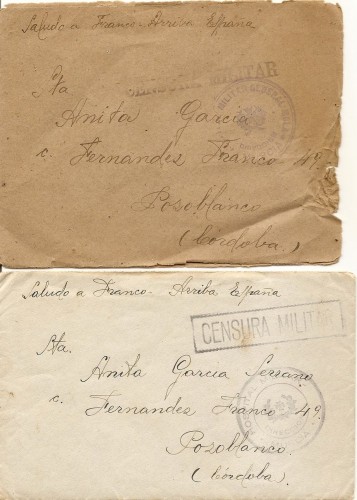 Saludo a Franco. Arriba España
CENSURA MILITAR
Sta
Anita Garcia
c. Fernandes Franco 4º.
Posoblanco
(Córdoba.)
Saludo a Franco. Arriba España
CENSURA MILITAR
Sta.
Anita Garcia Serrano
c. Fernandes Franco 4º.
Posoblanco.
(Córdoba.)